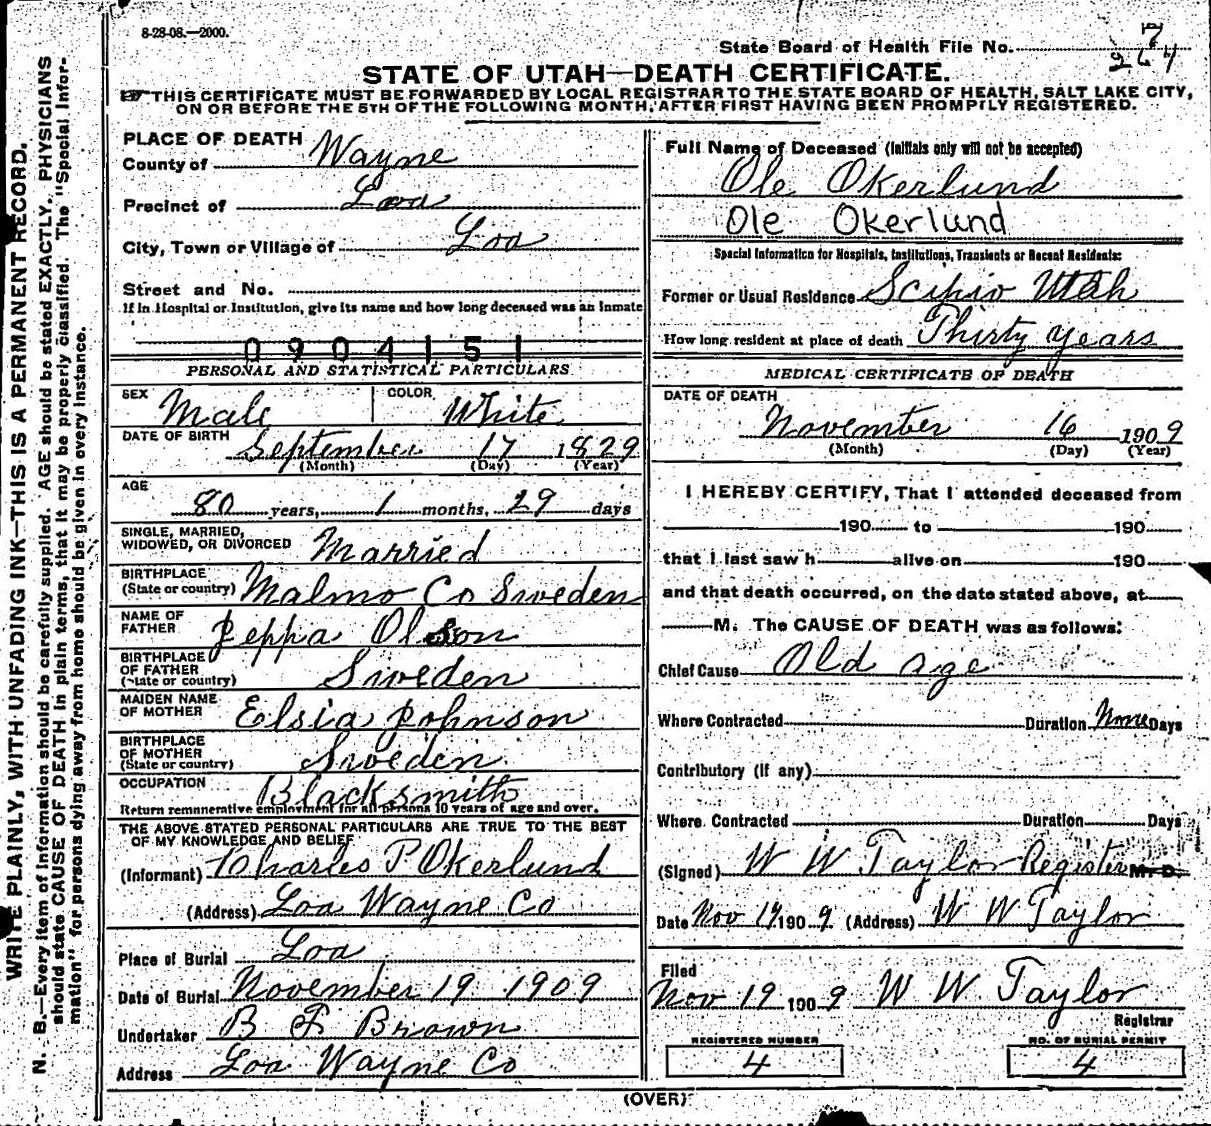 8-28-08.—2000.
State Board of Health File No. 7
264
STATE OF UTAH—DEATH CERTIFICATE.
THIS CERTIFICATE MUST BE FORWARDED BY LOCAL REGISTRAR TO THE STATE BOARD OF HEALTH, SALT LAKE CITY,
ON OR BEFORE THE 5TH OF THE FOLLOWING MONTH, AFTER FIRST HAVING BEEN PROMPTLY REGISTERED.
WRITE PLAINLY, WITH UNFADING INK—THIS IS A PERMANENT RECORD.
N. B.—Every item of information should be carefully supplied. AGE should be stated EXACTLY. PHYSICIANS
should state CAUSE OF DEATH in plain terms, that it may be properly classified. The "Special Infor-
mation" for persons dying away from home should be given in every instance.
PLACE OF DEATH
County of Wayne
Precinct of Loa
City, Town or Village of Loa
Street and No.
If in Hospital or Institution, give its name and how long deceased was an inmate
0904151
PERSONAL AND STATISTICAL PARTICULARS
SEX Male COLOR White
DATE OF BIRTH September 17 1829
(Month) (Day) (Year)
AGE
80 years, 1 months, 29 days
SINGLE, MARRIED,
WIDOWED, OR DIVORCED Married
BIRTHPLACE
(State or country) Malmo Co Sweden
NAME OF
FATHER Jeppa Olson
BIRTHPLACE
OF FATHER
(State or country) Sweden
MAIDEN NAME
OF MOTHER Elsia Johnson
BIRTHPLACE
OF MOTHER
(State or country) Sweden
OCCUPATION Blacksmith
Return remunerative employment for all persons 10 years of age and over.
THE ABOVE STATED PERSONAL PARTICULARS ARE TRUE TO THE BEST
OF MY KNOWLEDGE AND BELIEF
(Informant) Charles P Okerlund
(Address) Loa Wayne Co
Place of Burial Loa
Date of Burial November 19 1909
Undertaker B F Brown
Address Loa Wayne Co
Full Name of Deceased (Initials only will not be accepted)
Ole Okerlund
Ole Okerlund
Special Information for Hospitals, Institutions, Transients or Recent Residents:
Former or Usual Residence Scipio Utah
How long resident at place of death Thirty years
MEDICAL CERTIFICATE OF DEATH
DATE OF DEATH
November 16 1909
(Month) (Day) (Year)
I HEREBY CERTIFY, That I attended deceased from
190 to 190
that I last saw h alive on 190
and that death occurred, on the date stated above, at
M. The CAUSE OF DEATH was as follows:
Chief Cause Old age
Where Contracted Duration None Days
Contributory (if any)
Where Contracted Duration Days
(Signed) W W Taylor Register M. D.
Date Nov 19 1909 (Address) W W Taylor
Filed
Nov 19 1909 W W Taylor
Registrar
REGISTERED NUMBER
4
NO. OF BURIAL PERMIT
4
(OVER)